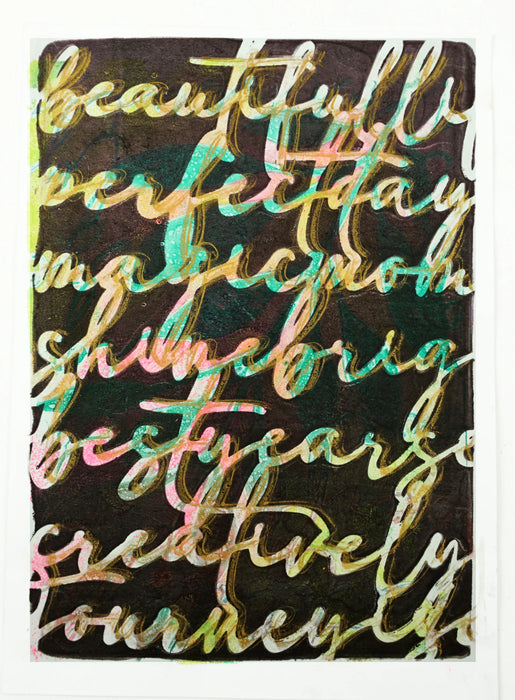 beautifully
perfectday
magicmom
shinebrig
bestyearso
creatively
journeygo